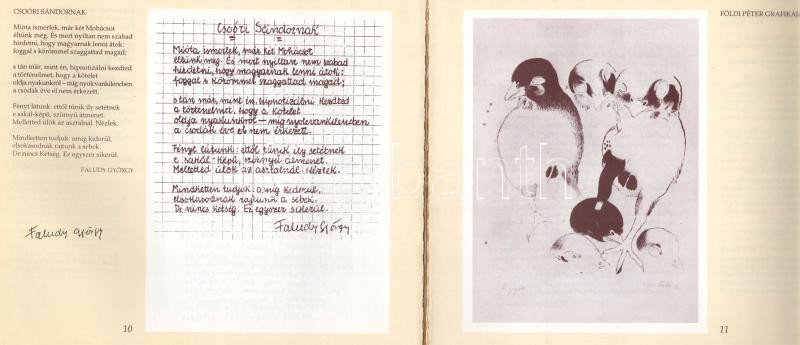 CSOÓRI SÁNDORNAK
Mióta ismerlek, már két Mohácsot
éltünk meg. És mert nyíltan nem szabad
hirdetni, hogy magyarnak lenni átok:
foggal s körömmel szaggattad magad;
s tán már, mint én, hipnotizálni kezdted
a történelmet, hogy a kötelet
oldja nyakunkról – míg nyolcvankilencben
a csodák éve el nem érkezett.
Fényt látunk: ettől tűnik ily setétnek
e sakál-képű, szörnyű átmenet.
Melletted ülök az asztalnál. Nézlek.
Mindketten tudjuk: amíg kiderül,
elsokasodnak rajtunk a sebek.
De nincs Kétség. Ez egyszer sikerül.
FALUDY GYÖRGY
Faludy György
10
Csoóri Sándornak
Mióta ismerlek, már két Mohácsot
éltünk meg. És mert nyíltan nem szabad
hirdetni, hogy magyarnak lenni átok:
foggal s körömmel szaggattad magad;
s tán már, mint én, hipnotizálni kezdted
a történelmet, hogy a kötelet
oldja nyakunkról – míg nyolcvankilencben
a csodák éve el nem érkezett.
Fényt látunk: ettől tűnik ily setétnek
e sakál-képű, szörnyű átmenet.
Melletted ülök az asztalnál. Nézlek.
Mindketten tudjuk: amíg kiderül,
elsokasodnak rajtunk a sebek.
De nincs kétség. Ez egyszer sikerül.
Faludy György
FÖLDI PÉTER GRAFIKÁJA
11